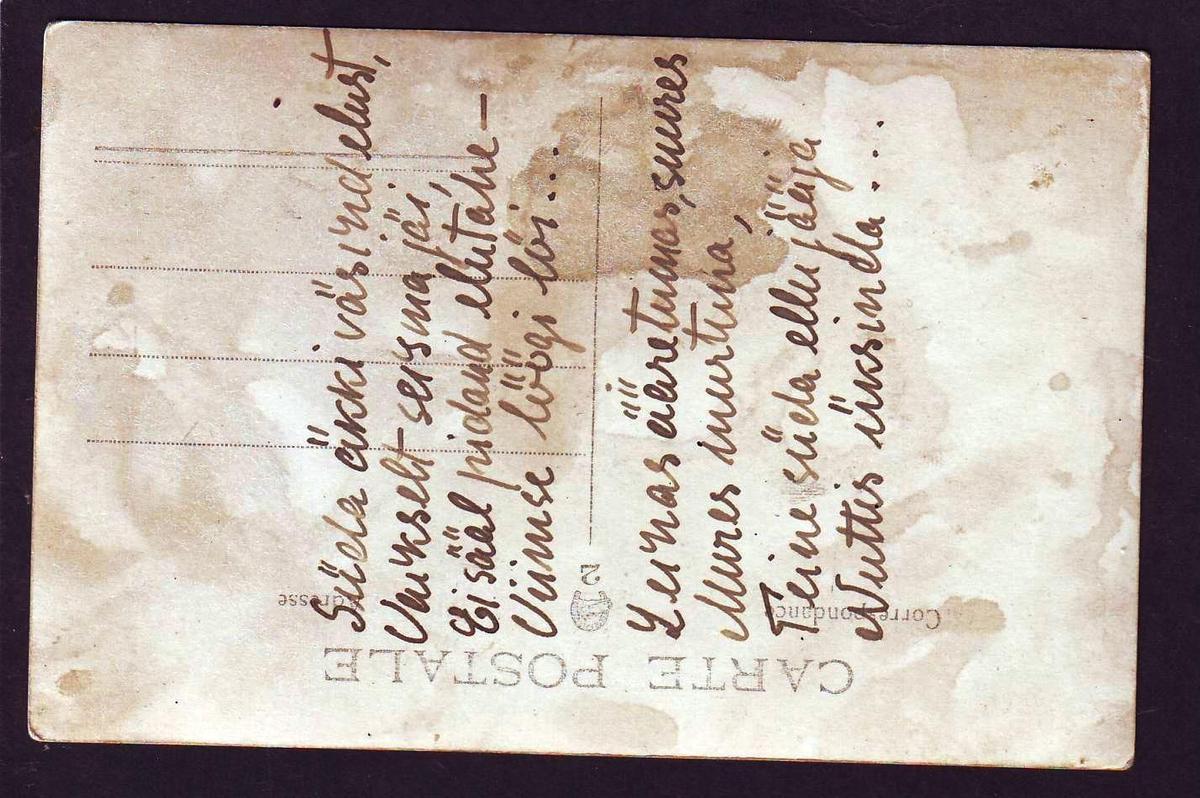 Süda äkki väsind elust,
Vaikselt seisma jäi,
Ei sääl pidand elutahe —
Viimse löögi lõi...
Leinas ääretumas, suures
Mures murtuna,
Teine süda ellu jääja
Nuttis üksinda...
CARTE POSTALE
Correspondance
Adresse
2